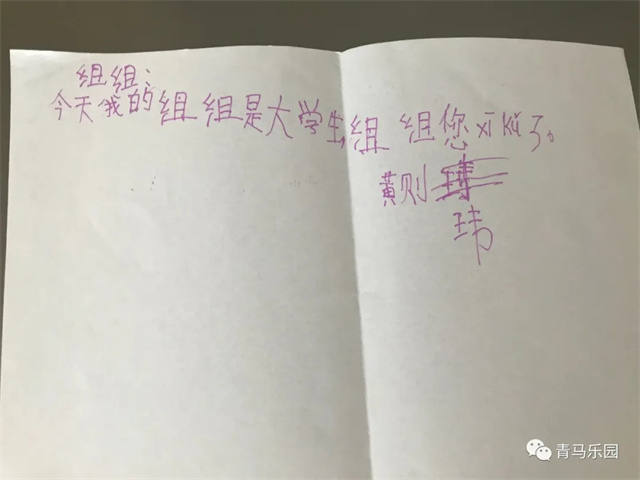 组组：
今天我的组组是大学生,组组您xī kǔ了。
黄则
玮
青马乐园